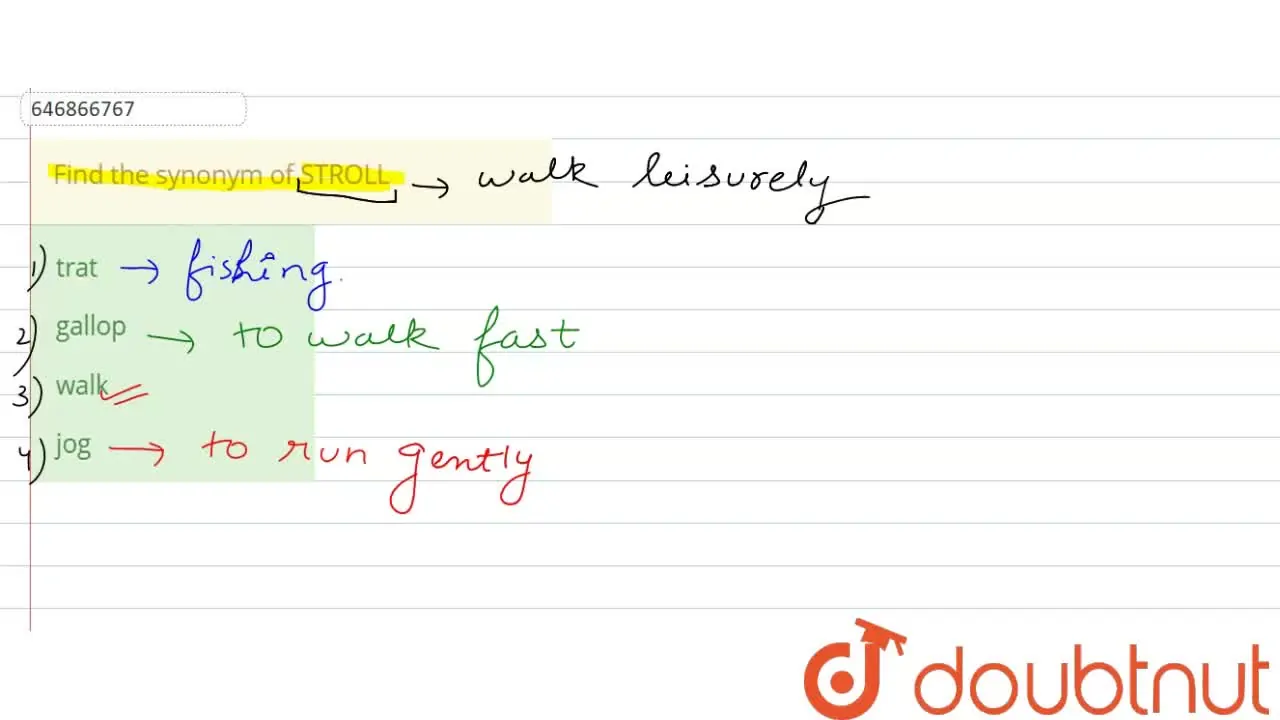 646866767
Find the synonym of STROLL → walk leisurely
1) trat → fishing.
2) gallop → to walk fast
3) walk
4) jog → to run gently
doubtnut